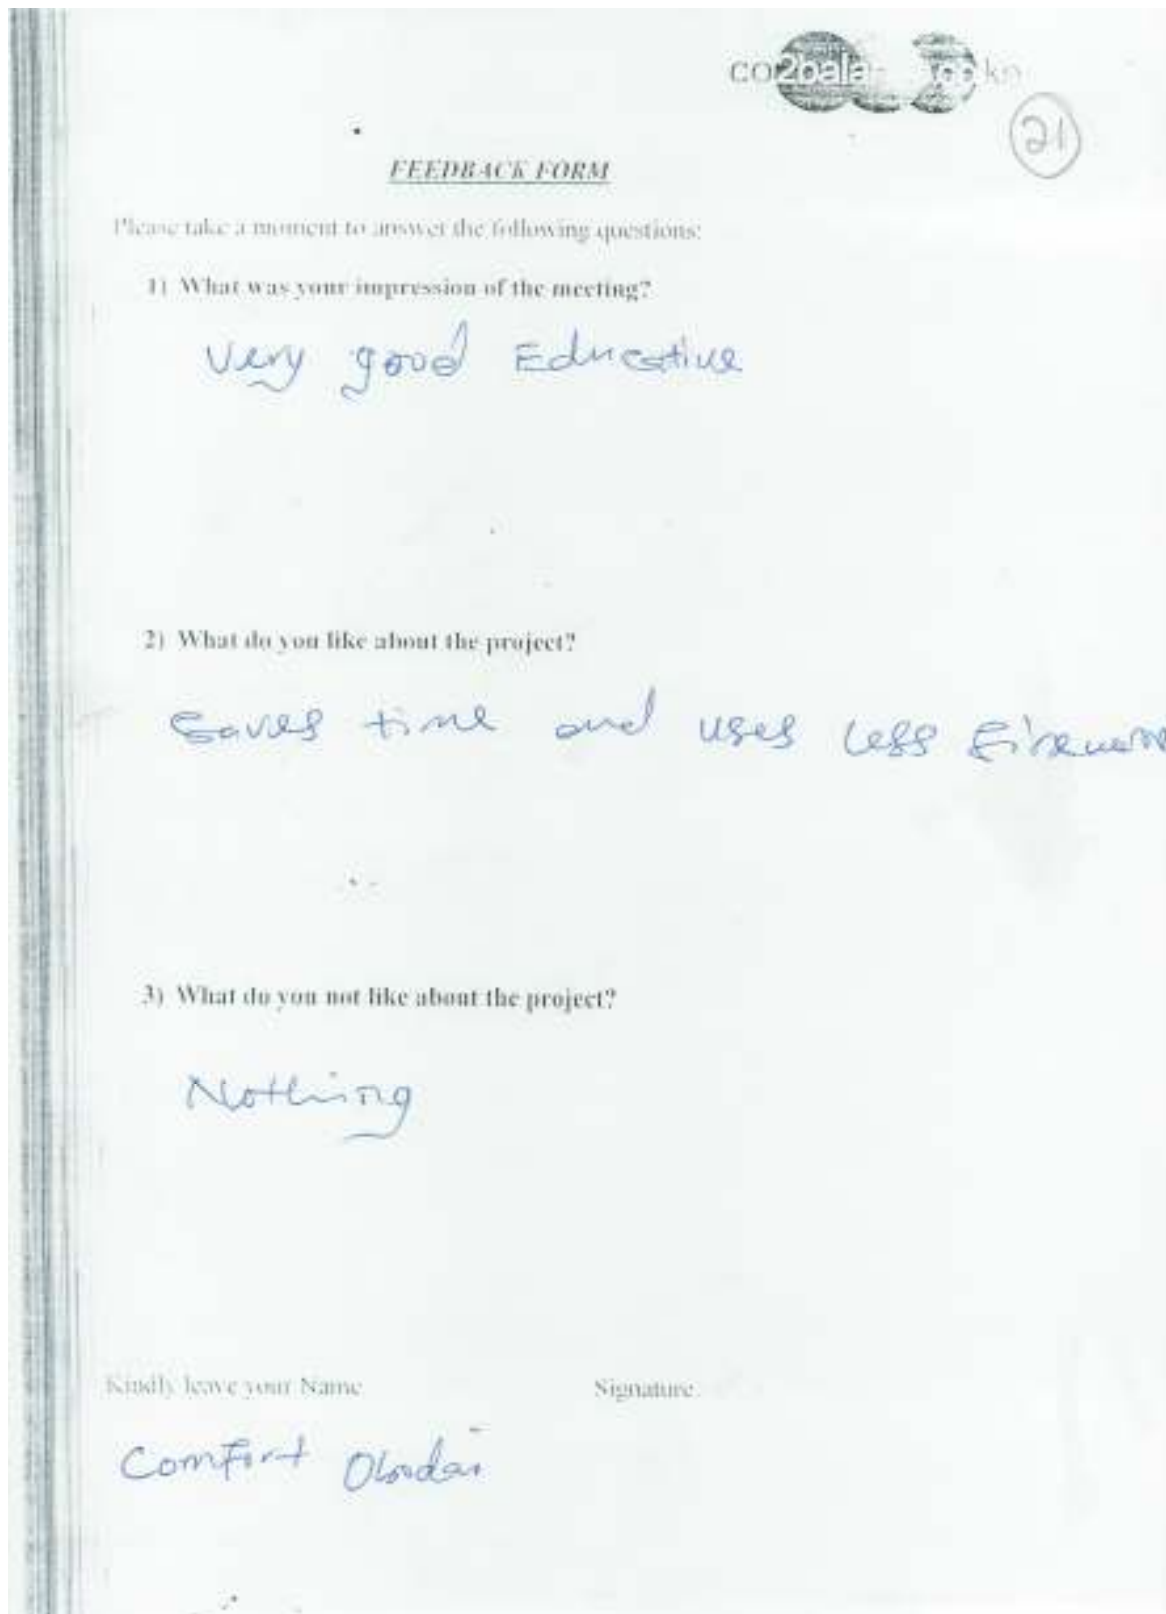 21
FEEDBACK FORM
Please take a moment to answer the following questions:
1) What was your impression of the meeting?
Very good Educative
2) What do you like about the project?
Saves time and uses less
3) What do you not like about the project?
Nothing
Kindly leave your Name
Signature
Comfort